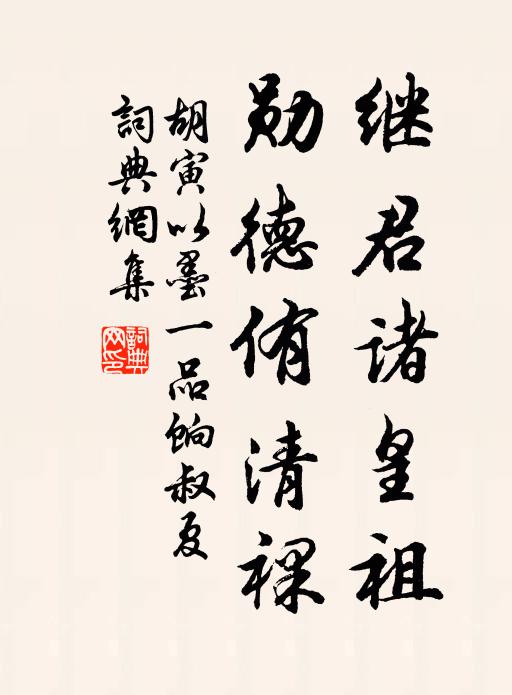 继君诸皇祖
勋德侑清祼
胡寅以墨一品餉叔夏
詞典網集
詞典网印